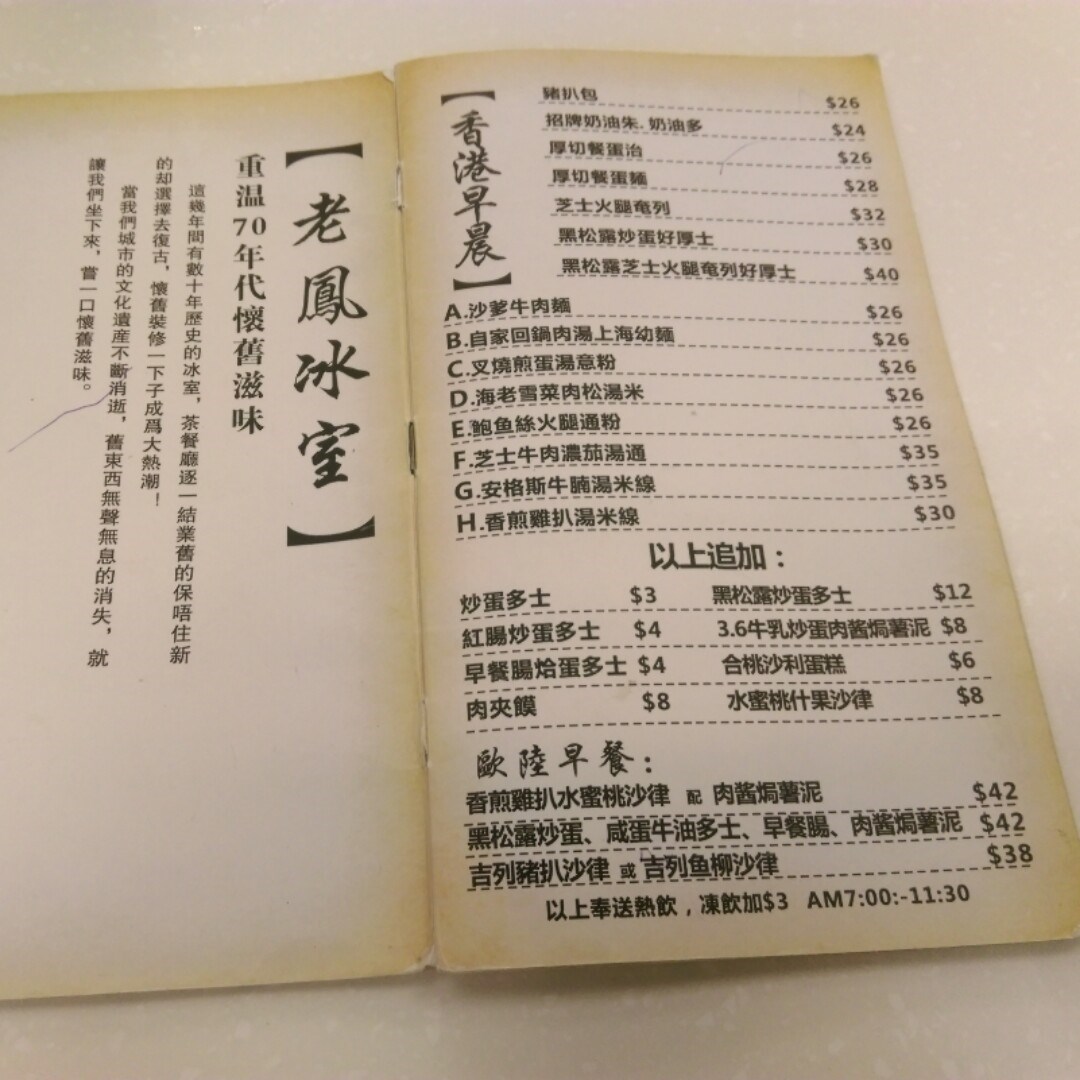 【老鳳冰室】
重温70年代懷舊滋味
這幾年間有數十年歷史的冰室，茶餐廳逐一結業舊的保唔住新
的却選擇去復古，懷舊裝修一下子成爲大熱潮！
當我們城市的文化遺産不斷消逝，舊東西無聲無息的消失，就
讓我們坐下來，嘗一口懷舊滋味。
【香港早晨】
豬扒包 $26
招牌奶油朱.奶油多 $24
厚切餐蛋治 $26
厚切餐蛋麵 $28
芝士火腿奄列 $32
黑松露炒蛋好厚士 $30
黑松露芝士火腿奄列好厚士 $40
A.沙爹牛肉麵 $26
B.自家回鍋肉湯上海幼麵 $26
C.叉燒煎蛋湯意粉 $26
D.海老雪菜肉松湯米 $26
E.鮑鱼絲火腿通粉 $26
F.芝士牛肉濃茄湯通 $35
G.安格斯牛腩湯米線 $35
H.香煎雞扒湯米線 $30
以上追加：
炒蛋多士 $3 黑松露炒蛋多士 $12
紅腸炒蛋多士 $4 3.6牛乳炒蛋肉酱焗薯泥 $8
早餐腸烚蛋多士 $4 合桃沙利蛋糕 $6
肉夾饃 $8 水蜜桃什果沙律 $8
歐陸早餐：
香煎雞扒水蜜桃沙律 配 肉酱焗薯泥 $42
黑松露炒蛋、咸蛋牛油多士、早餐腸、肉酱焗薯泥 $42
吉列豬扒沙律 或 吉列鱼柳沙律 $38
以上奉送熱飲，凍飲加$3 AM7:00:-11:30